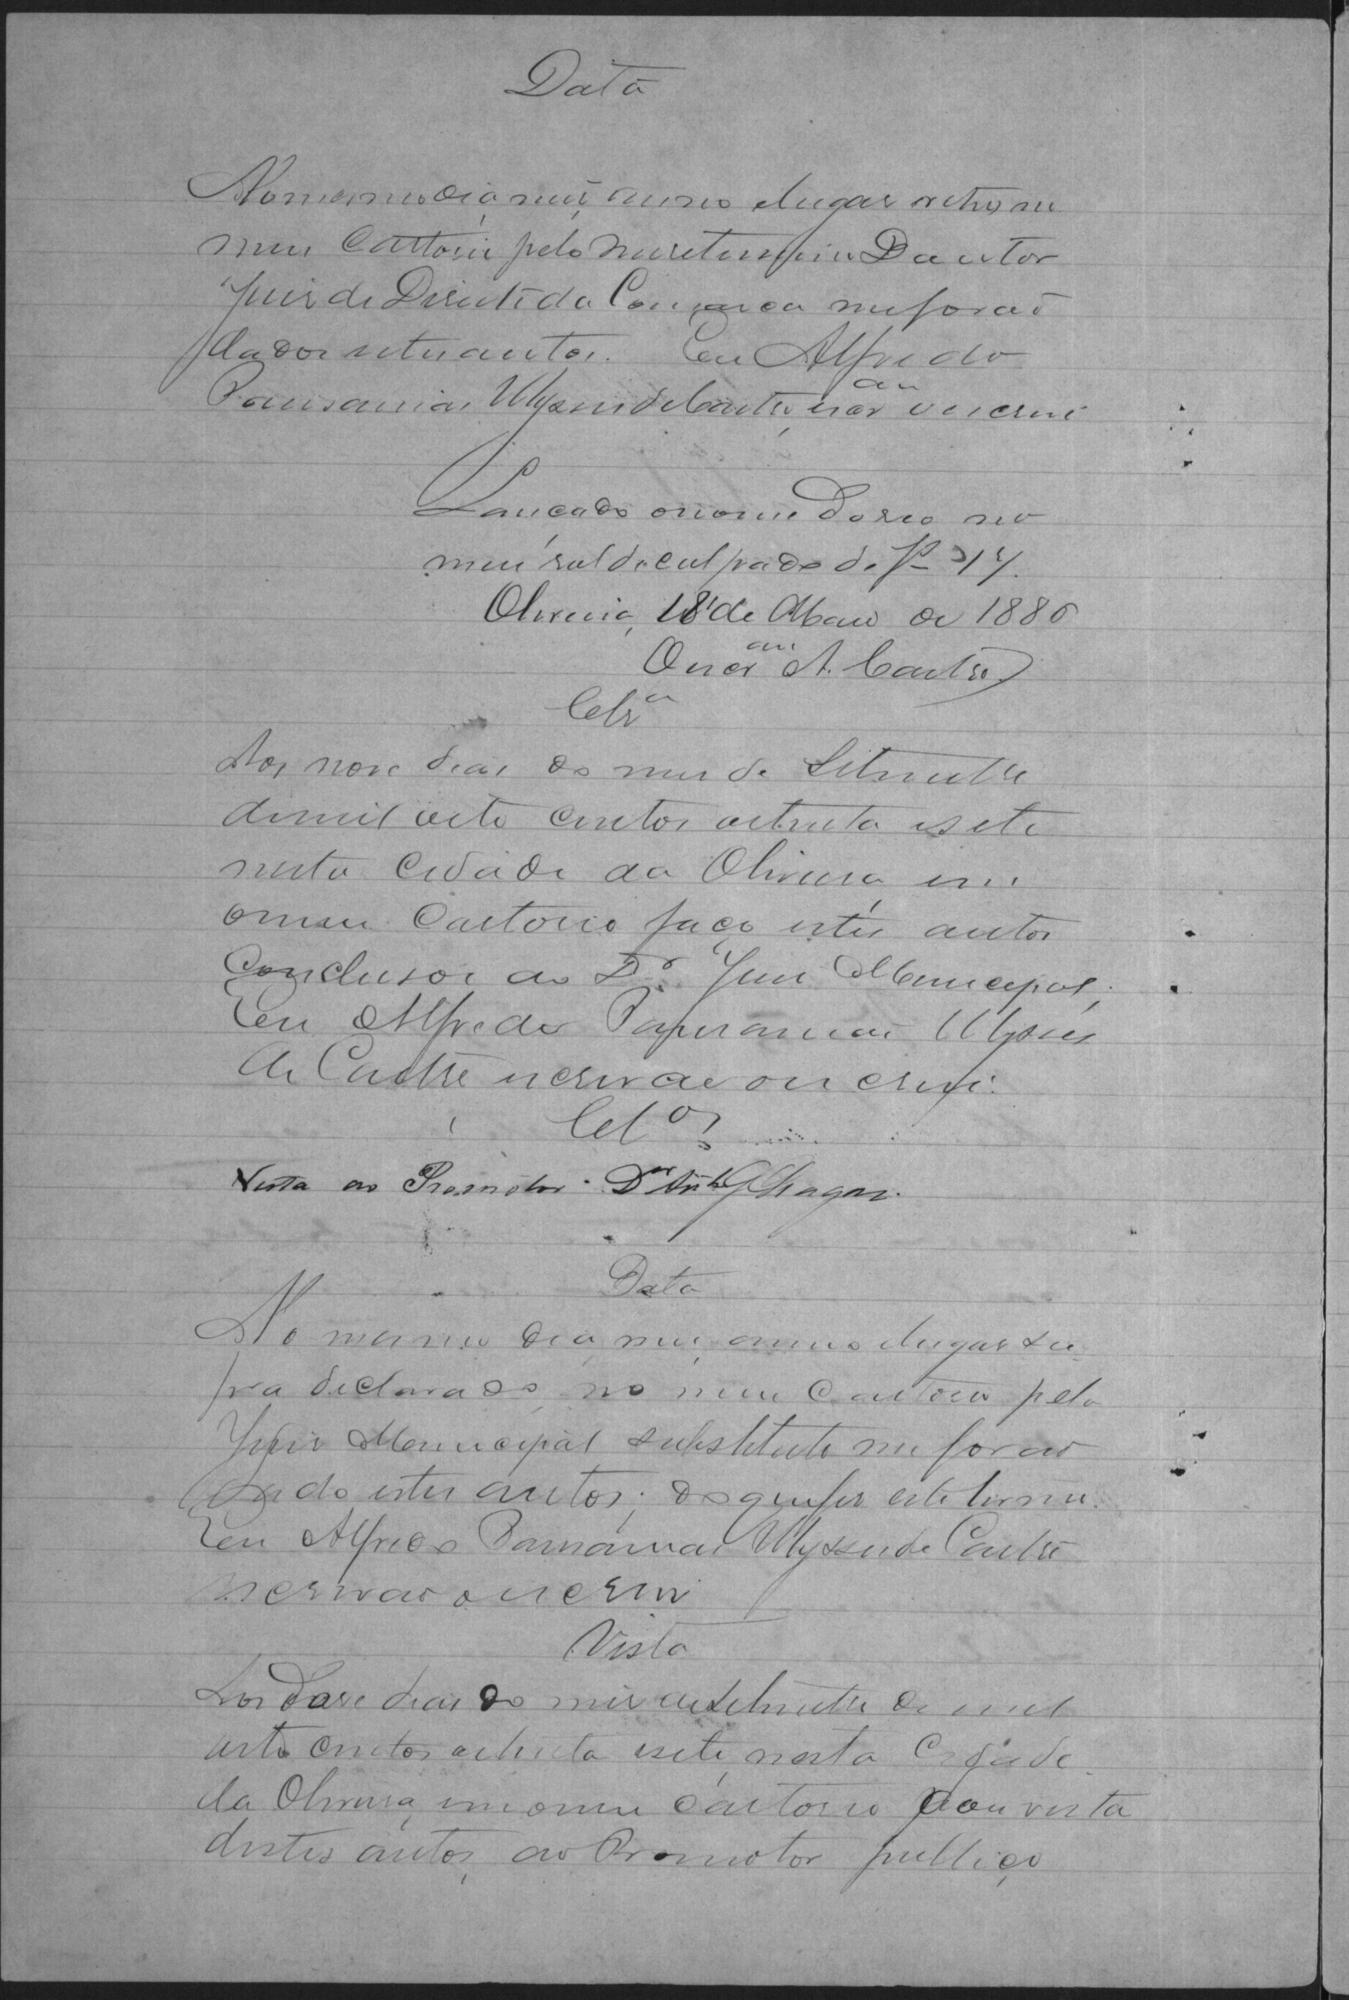 Data
No mesmo dia, mes, anno e lugar retro em
meu Cartorio pelo meretissimo Doutor
Juis de Direito da Comarca me forão
dados estes autos. Eu Alfredo
Pausanias Ulysses de Castro, escr.am o escrevi
Lançado o nome do reo no
meu rol de culpado de f
Oliveira, 18 de Maio de 1886
O escr.am A. Castro
Cls.a
Aos nove dias do mes de Setembro
de mil oito centos oitenta e sete
nesta Cidade da Oliveira em
o meu Cartorio faço estes autos
Conclusos ao D.r Juis Municipal;
Eu Alfredo Pausanias Ulysses
de Castro escrivão o escrevi.
Cl.os
Vista ao Promotor. D.or Ant.o Chagas.
Data
No mesmo dia, mes, anno e lugar su
pra declarado, no meu Cartorio pelo
Juis Municipal substituto me forão
dado estes autos; do que fis este termo.
Eu Alfredo Pausanias Ulysses de Castro
escrivão o escrevi
Vista
Aos Dose dias do mes de Setembro de mil
oito centos oitenta e sete, nesta Cidade
da Oliveira, em o meu Cartorio dou vista
destes autos, ao Promotor publico